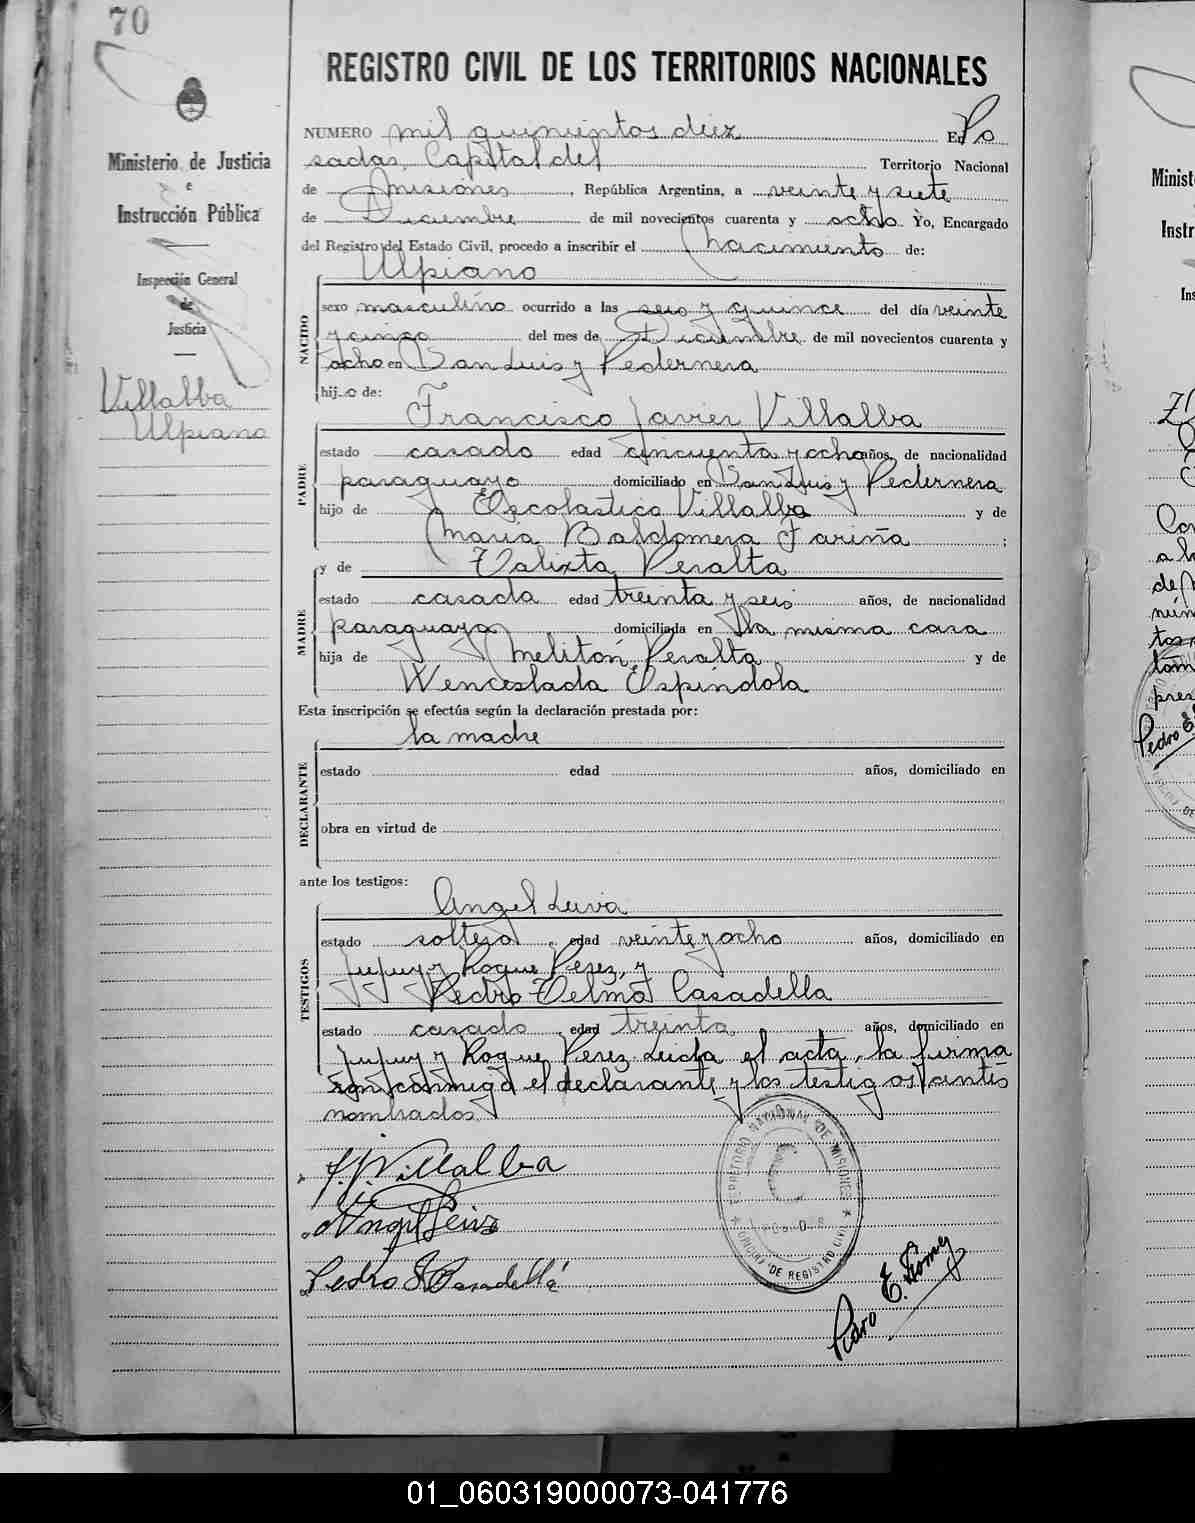 70
Ministerio de Justicia
e
Instrucción Pública
Inspección General
de
Justicia
Villalba
Ulpiano
REGISTRO CIVIL DE LOS TERRITORIOS NACIONALES
NUMERO mil quinientos diez En Po
sadas, Capital del Territorio Nacional
de Misiones, República Argentina, a veinte y siete
de Diciembre de mil novecientos cuarenta y ocho Yo, Encargado
del Registro del Estado Civil, procedo a inscribir el nacimiento de:
Ulpiano
NACIDO
sexo masculino ocurrido a las seis y quince del día veinte
y cinco del mes de Diciembre de mil novecientos cuarenta y
ocho en San Luis y Pedernera
hijo de:
Francisco Javier Villalba
PADRE
estado casado edad cincuenta y ocho años, de nacionalidad
paraguayo domiciliado en San Luis y Pedernera
hijo de Escolastico Villalba y de
Maria Baldomera Fariña ;
y de Calixta Peralta
MADRE
estado casada edad treinta y seis años, de nacionalidad
paraguaya domiciliada en la misma casa
hija de Melitón Peralta y de
Wenceslada Espindola
Esta inscripción se efectúa según la declaración prestada por:
la madre
DECLARANTE
estado edad años, domiciliado en
obra en virtud de
ante los testigos:
Angel Leiva
TESTIGOS
estado soltero, edad veinte y ocho años, domiciliado en
Jujuy y Roque Perez, y
Pedro Telmo Casadella
estado casado, edad treinta años, domiciliado en
Jujuy y Roque Perez Leida el acta, la firma
ron conmigo el declarante y los testigos antes
nombrados.
F. J. Villalba
Angel Leiva
Pedro T Casadella
TERRITORIO NACIONAL DE MISIONES
DE REGISTRO CIVIL
Pedro E. Gomez
Minist
Instr
Ins
Pedro E
01_060319000073-041776